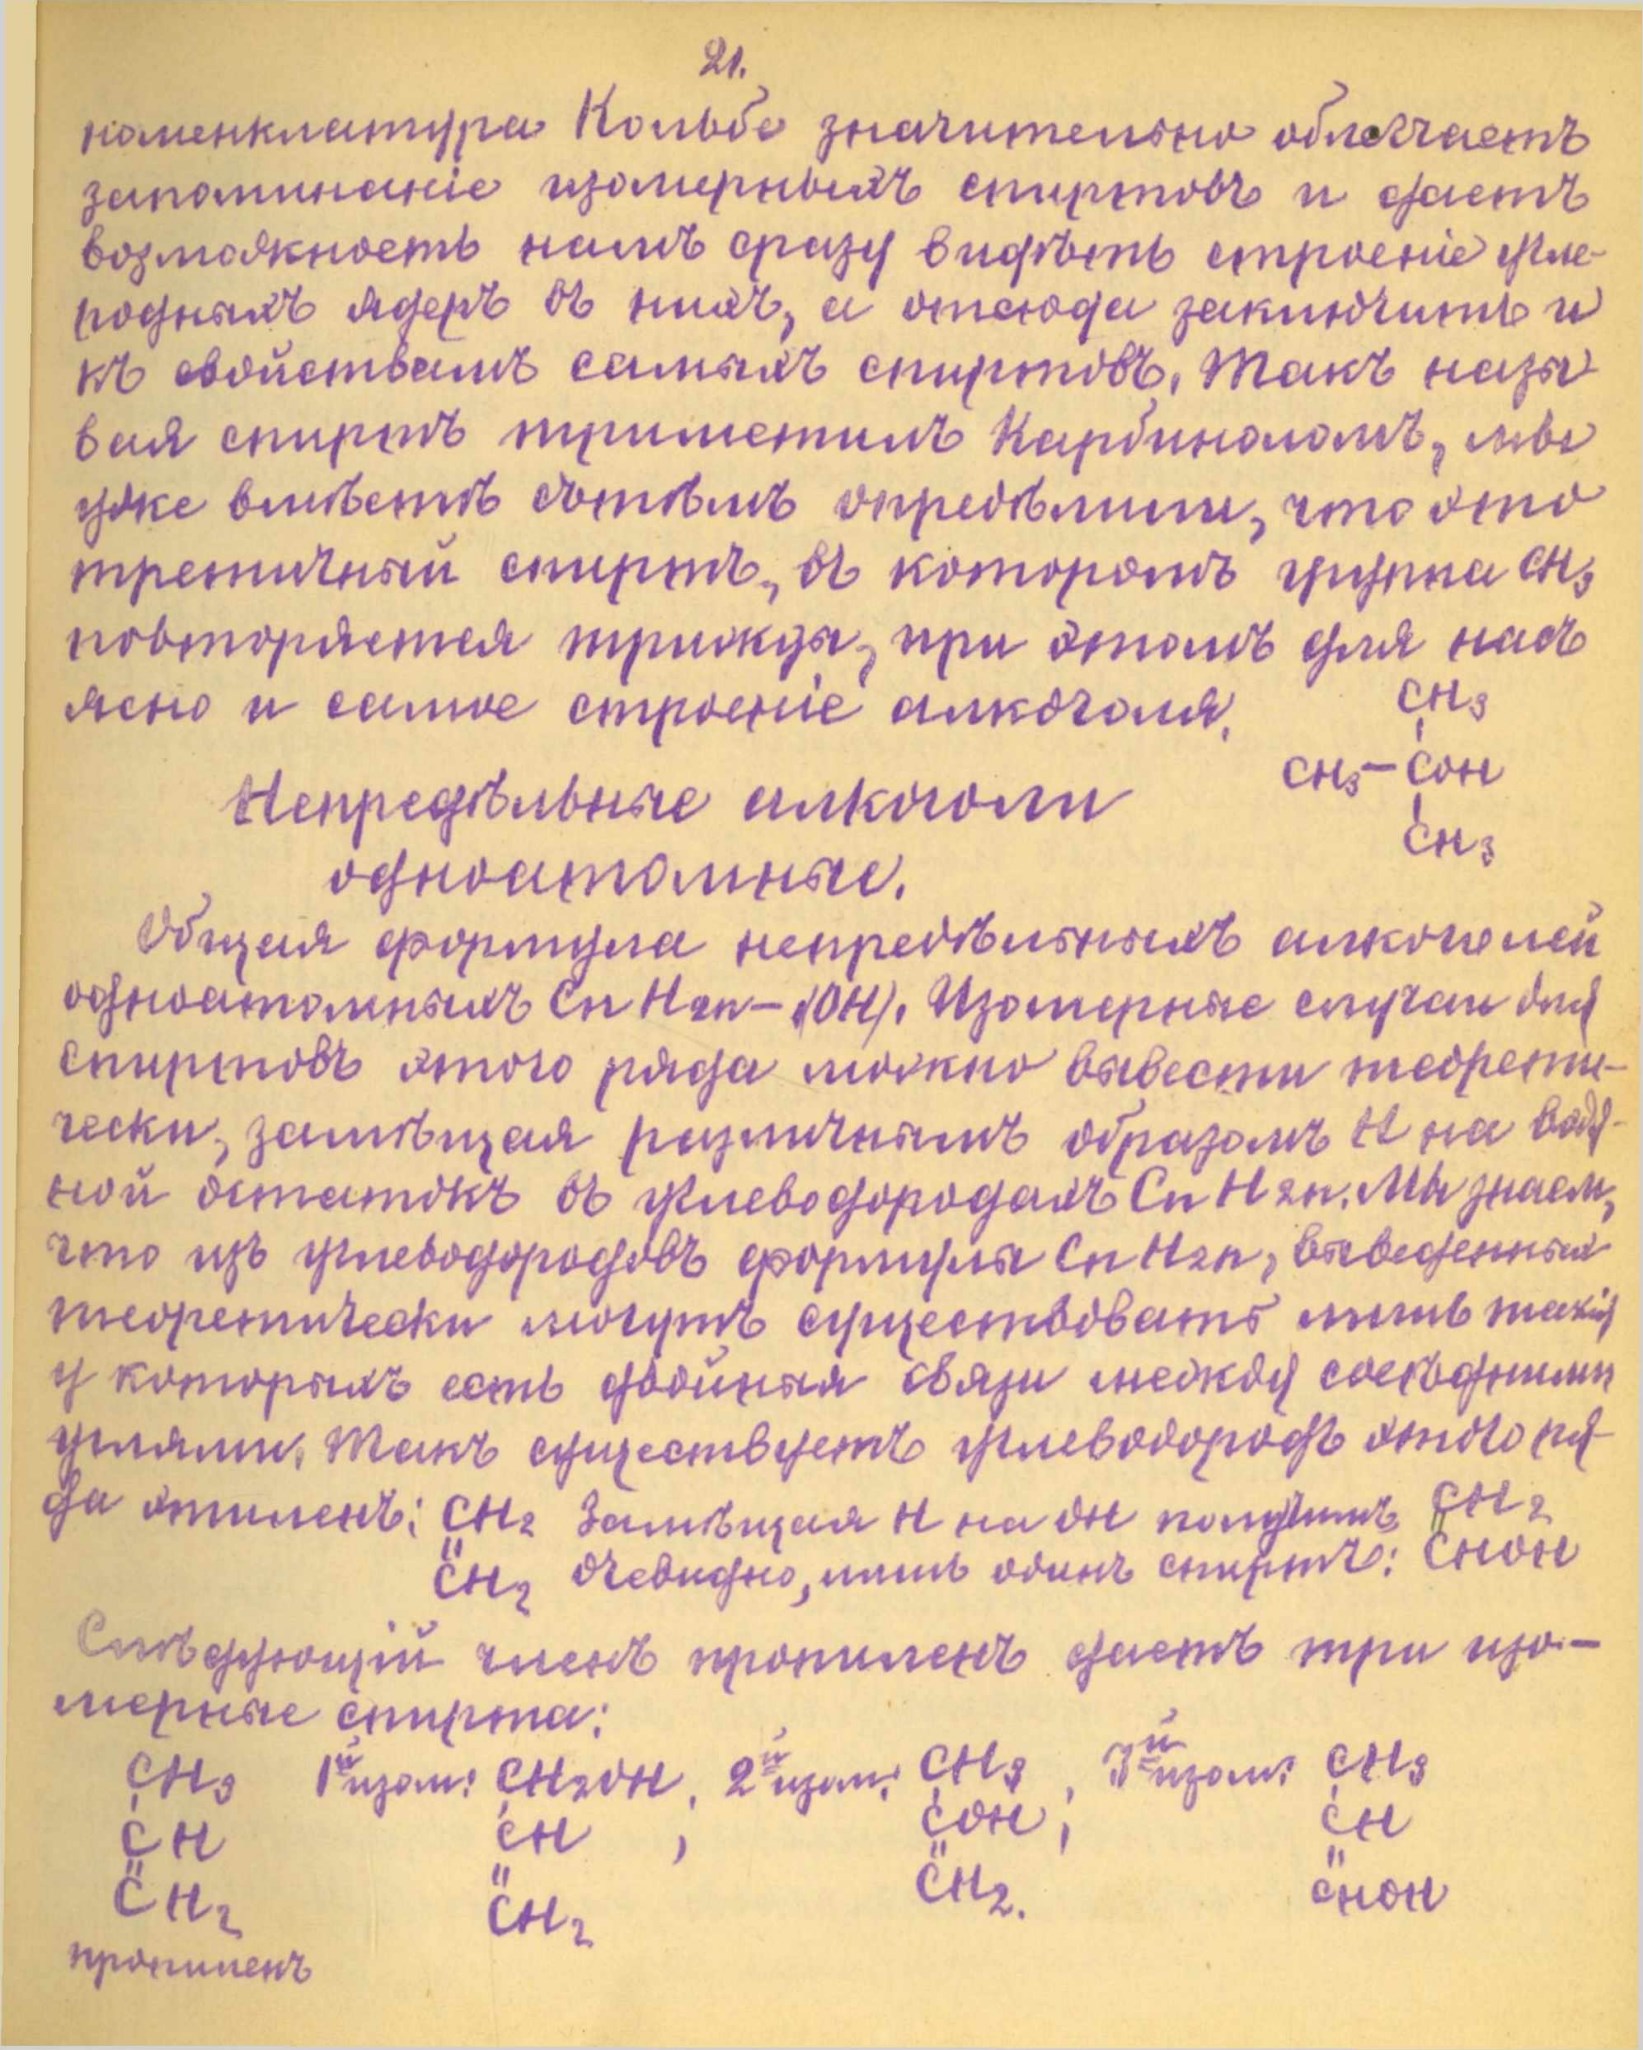 21.
номенклатура Кольбе значительно облегчаетъ
запоминаніе изомерныхъ спиртовъ и даетъ
возможность намъ сразу видѣть строеніе угле-
родныхъ ядеръ въ нихъ, а отсюда заключить и
къ свойствамъ самыхъ спиртовъ. Такъ назы-
вая спиртъ триметилъ Карбиноломъ, мы
уже вмѣстѣ съ тѣмъ опредѣлили, что это
третичный спиртъ, въ которомъ группа CH3
повторяется трижды, при этомъ для насъ
ясно и самое строеніе алкоголя.
CH3
CH3 – COH
CH3
Непредѣльные алкоголи
одноатомные.
Общая формула непредѣльныхъ алкоголей
одноатомныхъ Cn H2n–1(OH). Изомерные случаи для
спиртовъ этого ряда можно вывести теорети-
чески, замѣщая различнымъ образомъ H на водя-
ной остатокъ въ углеводородахъ Cn H2n. Мы знаем,
что изъ углеводородовъ формулы Cn H2n, выведенных
теоретически могутъ существовать лишь такіе
у которыхъ есть двойныя связи между сосѣдними
углями. Такъ существуетъ углеводородъ этого ря-
да этиленъ: CH2 Замѣщая H на OH получимъ, CH2
CH2 очевидно, лишь одинъ спиртъ: CHOH
Слѣдующій членъ пропиленъ даетъ три изо-
мерные спирта:
CH3 1й изом: CH2OH, 2й изом: CH3, 3й изом: CH3
CH CH , COH , CH
CH2 CH2 CH2. CHOH
пропиленъ